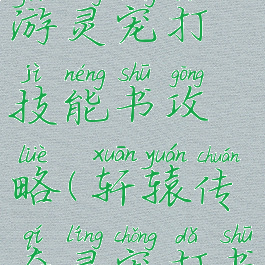 游灵宠打
jì néng shū gōng
技能书攻
lüè xuān yuán chuán
略(轩辕传
qí líng chǒng dǎ shū
奇灵宠打书